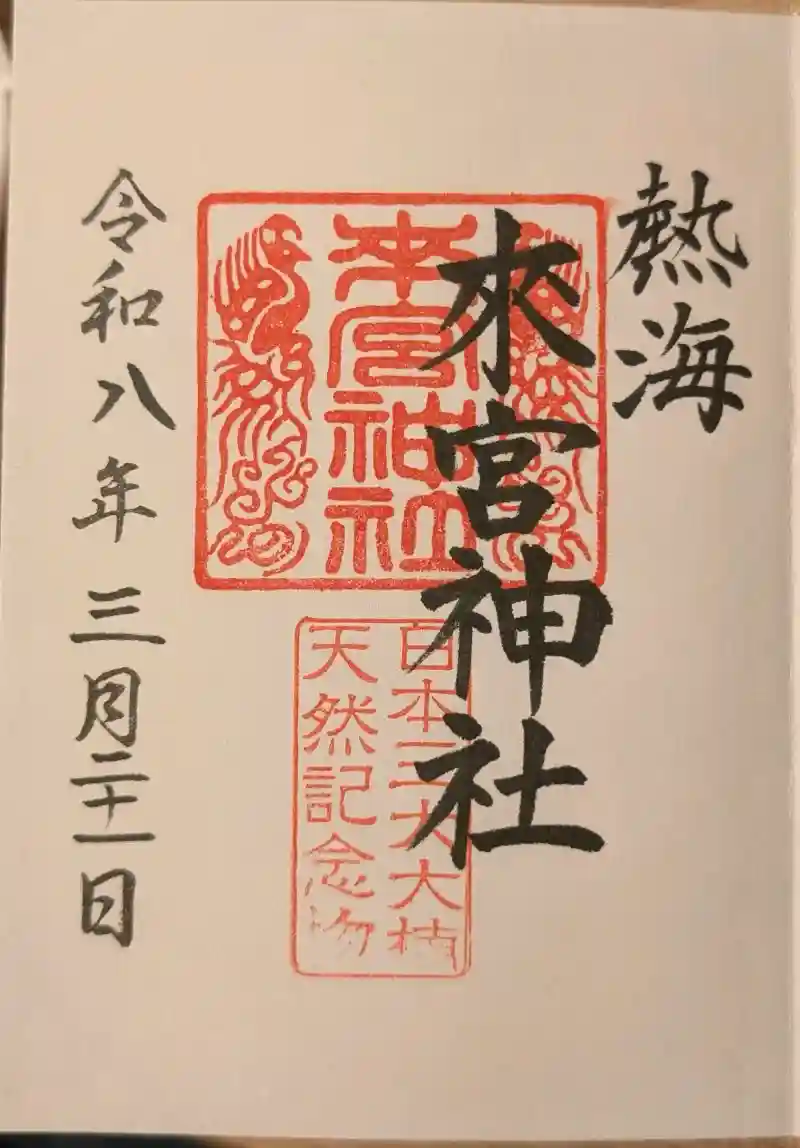 熱海
來宮神社
來宮神社
日本三大大楠
天然記念物
令和八年三月二十一日